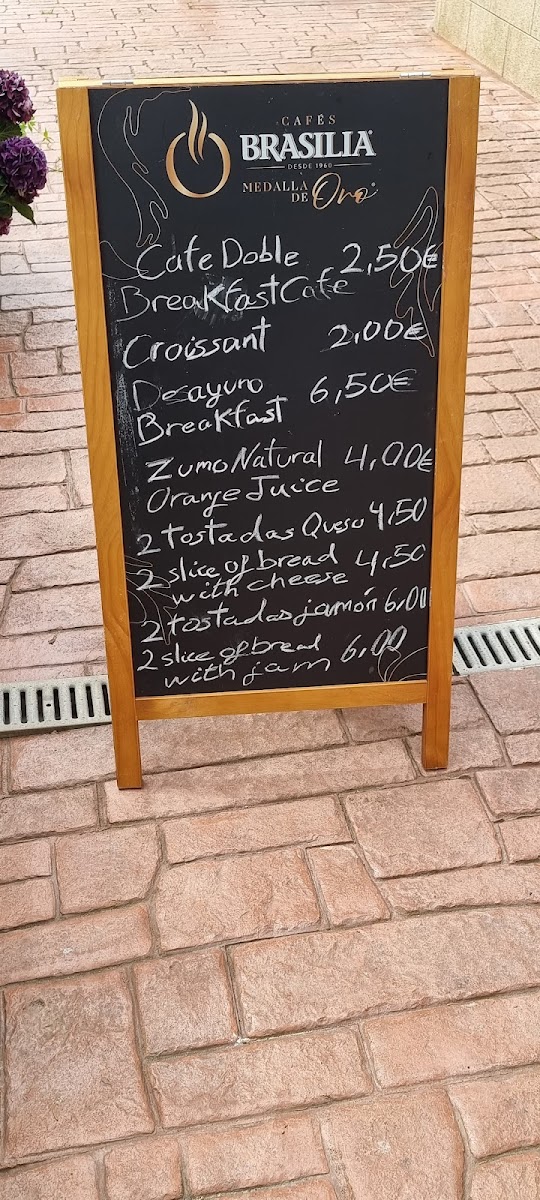 CAFÉS
BRASILIA
DESDE 1960
MEDALLA
DE Oro
Cafe Doble 2,50€
Breakfast Cafe
Croissant 2,00€
Desayuno 6,50€
Breakfast
Zumo Natural 4,00€
Orange Juice
2 tostadas Queso 4,50
2 slice of bread 4,50
with cheese
2 tostadas jamón 6,00
2 slice of bread
with jam 6,00